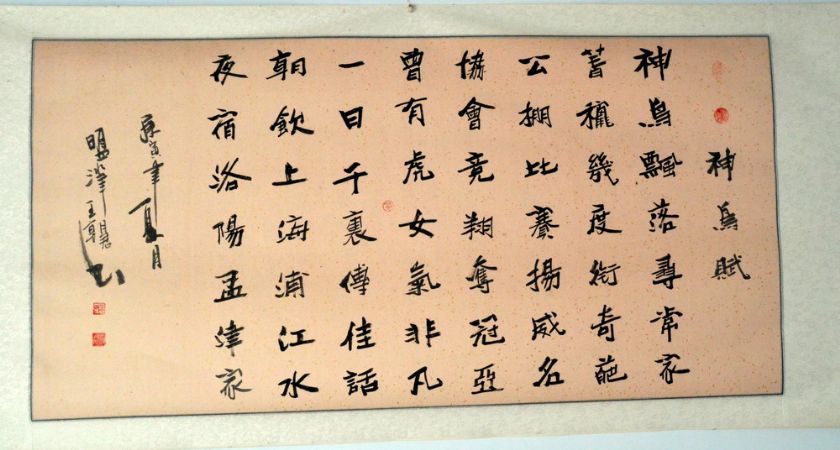 神鳥賦
神鳥飄落尋常家
幾度銜奇葩
公棚比賽揚威名
協會竟翔奪冠亞
曾有虎女氣非凡
一日千裏傳佳話
朝飲上海浦江水
夜宿洛陽孟津家
庚寅年夏月
盟津王